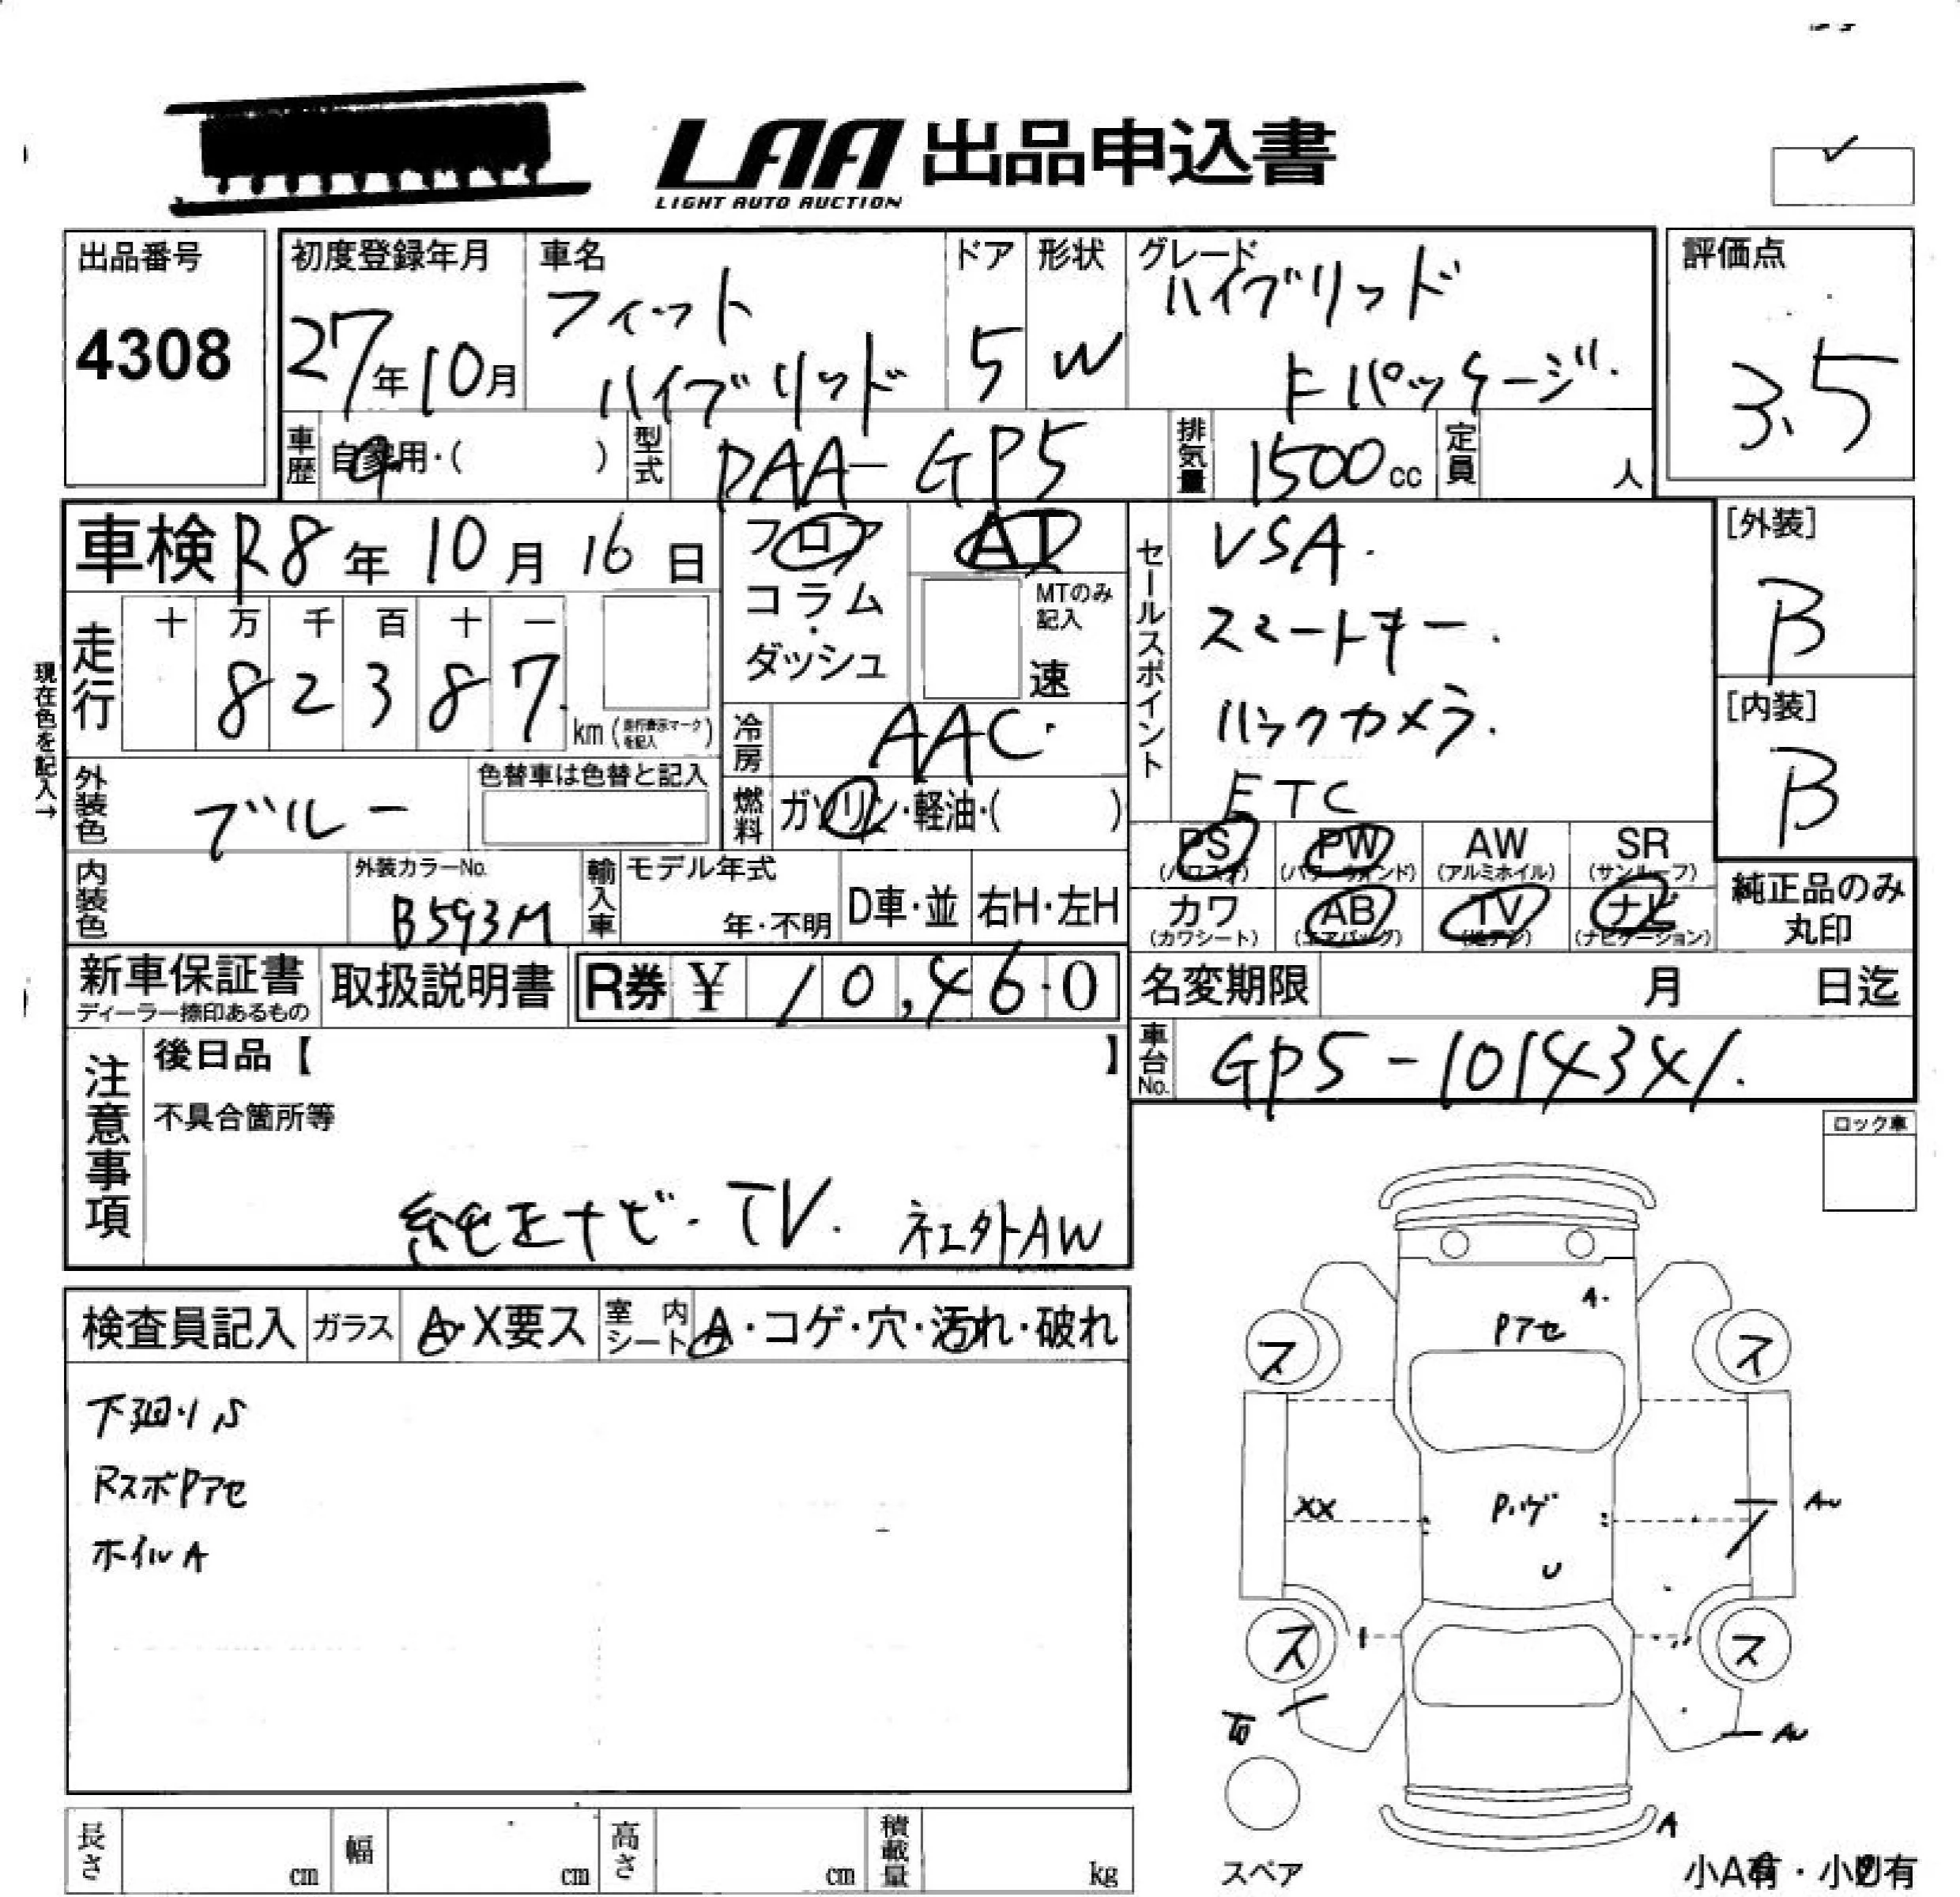 LAA 出品申込書
LIGHT AUTO AUCTION
出品番号
4308
初度登録年月
27年10月
車名
フィット
ハイブリッド
ドア
5
形状
W
グレード
ハイブリッド
Fパッケージ
評価点
3.5
車歴
自家用・( )
型式
DAA-GP5
排気量
1500cc
定員
人
車検 R8年10月16日
フロア
コラム
・
ダッシュ
AT
MTのみ
記入
速
走行
十 万 千 百 十 一
8 2 3 8 7
km(走行表示マークを記入)
現在色を記入→
冷房
AAC
外装色
ブルー
色替車は色替と記入
燃料
ガソリン・軽油・( )
セールスポイント
VSA.
スマートキー.
バックカメラ.
ETC
[外装]
B
[内装]
B
PS
PW
AW
(アルミホイル)
SR
(サンルーフ)
カワ
(カワシート)
AB
(エアバッグ)
TV
(地デジ)
ナビ
(ナビゲーション)
純正品のみ
丸印
内装色
外装カラーNo.
B593M
輸入車
モデル年式
年・不明
D車・並
右H・左H
新車保証書
ディーラー捺印あるもの
取扱説明書
R券 ¥ 10,460
名変期限
月 日迄
車台No.
GP5-1014341.
注意事項
後日品【 】
不具合箇所等
純正ナビ・TV. 社外AW
ロック車
検査員記入
ガラス
A・X要ス
室内シート
A・コゲ・穴・汚れ・破れ
下廻りS
RスポPアセ
ホイルA
A.
Pアセ
ス
ス
XX
Pハゲ
U
ス
ス
A
スペア
長さ cm
幅 cm
高さ cm
積載量 kg
小A有・小凹有